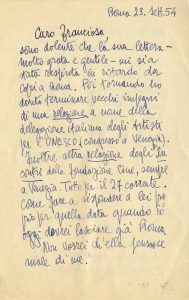 Roma 23. Sett. 54
Caro Franciosa
sono dolente che la sua lettera -
molto grata e gentile - mi sia
stata respinta in ritardo da
Capri a Roma. Poi tornando ho
dovuto terminare vecchi impegni
di una relazione a nome della
delegazione italiana degli Artisti
per l'UNESCO (congresso a Venezia).
Inoltre altra relazione degli In
contri della fondazione Cini, sempre
a Venezia. Tutto per il 27 corrente.
Come fare a rispondere a Lei
per quella data quando
oggi dovrei lasciare già Roma
Non vorrei ch'ella pensasse
male di me.